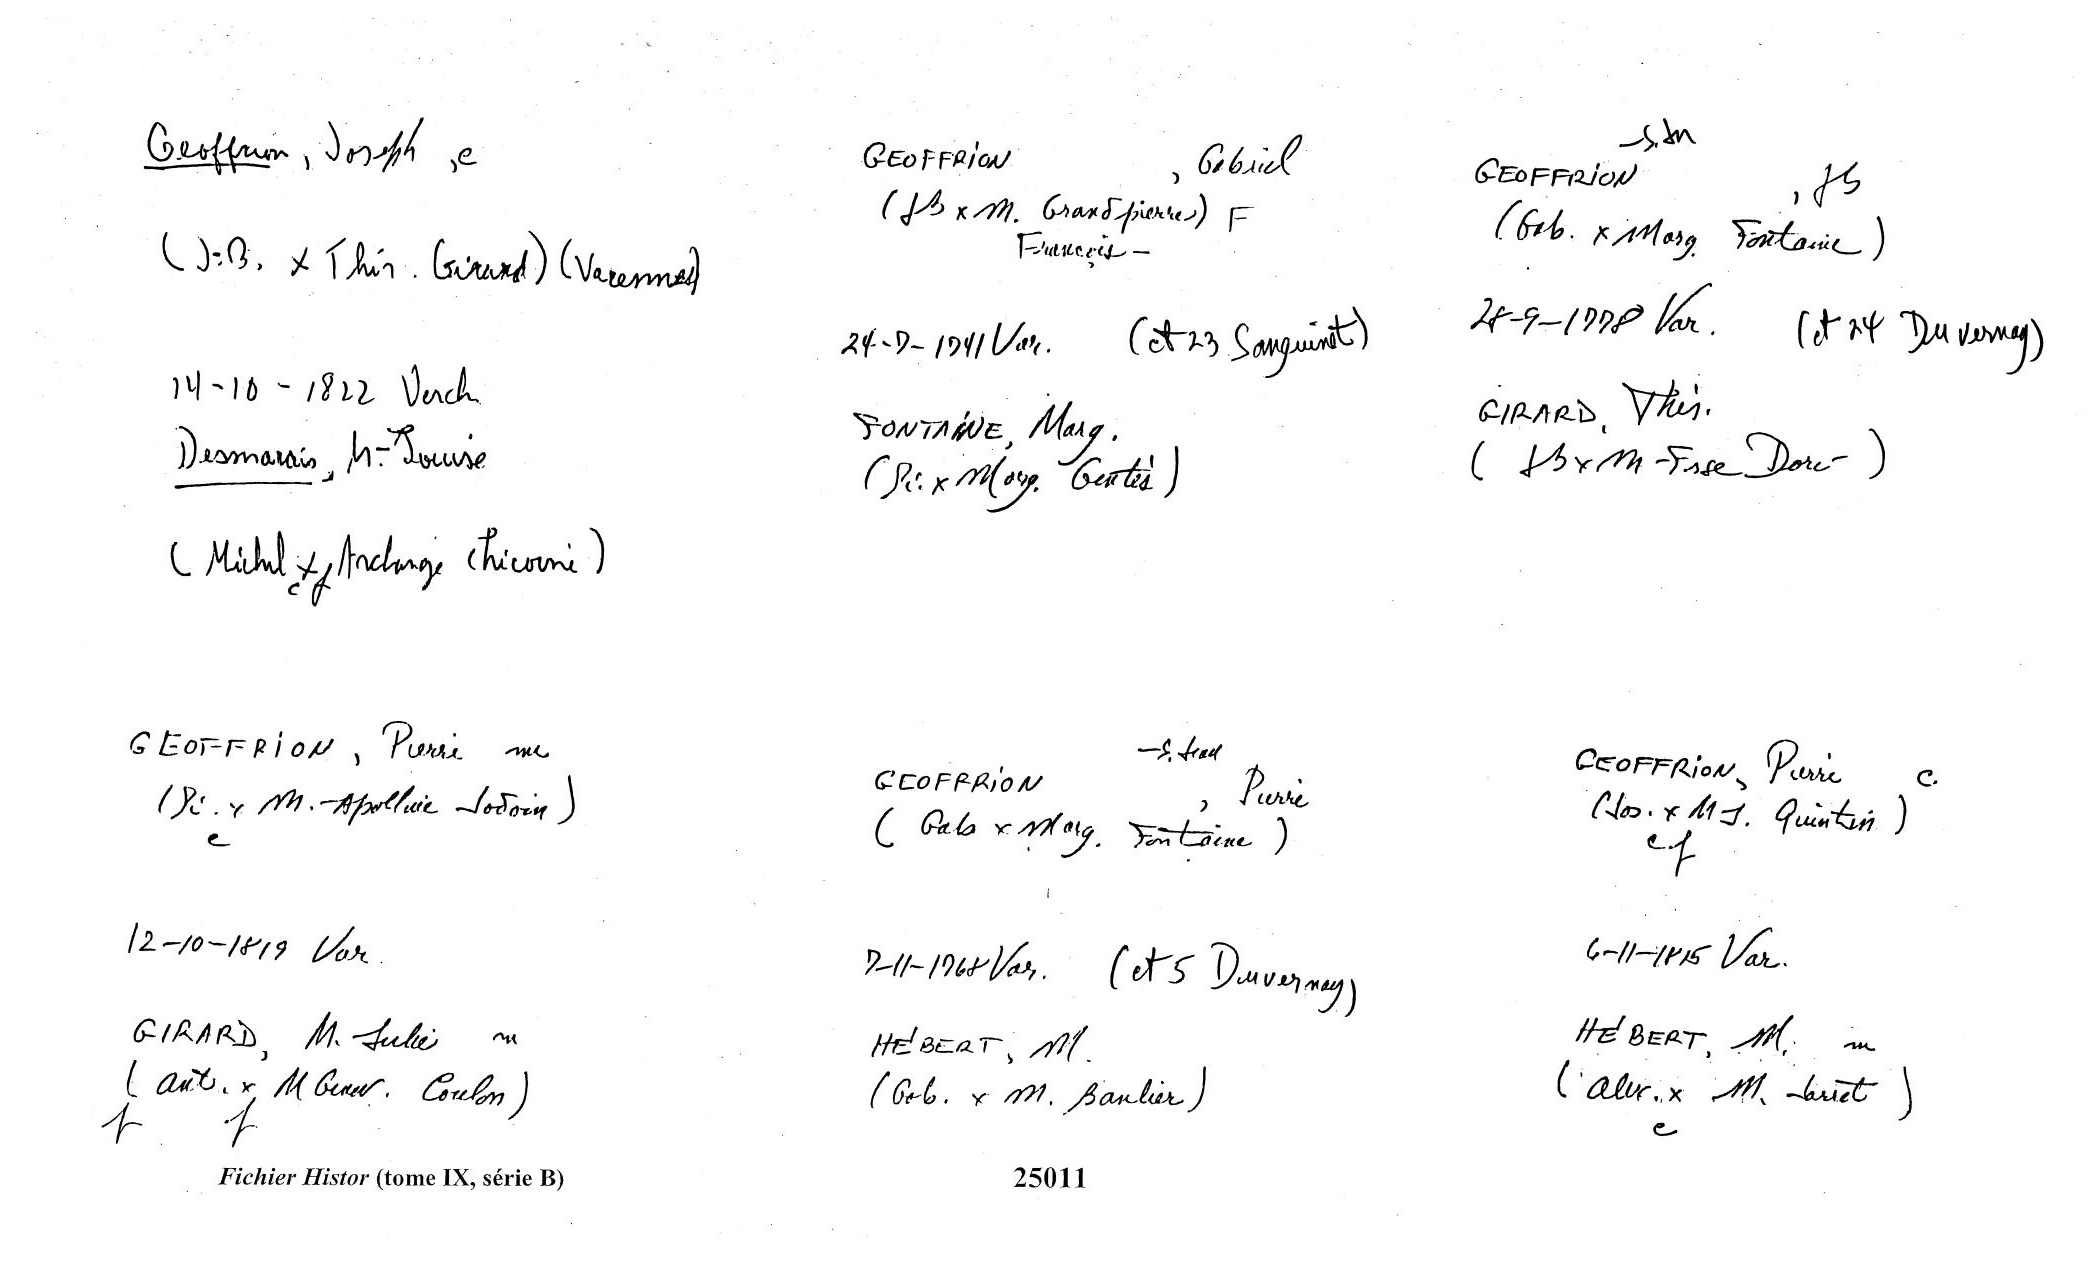 Geoffrion, Joseph, c
(J.B. x Thér. Girard) (Varennes)
14-10-1822 Verch.
Desmarais, M-Louise
(Michel x Archange Chicoine)
c f
GEOFFRION, Gabriel
(JB x M. Grandpierre) F
François-
24-7-1741 Var. (ct 23 Sanguinet)
FONTAINE, Marg.
(Pi. x Marg. Gentès)
GEOFFRION, JB
(Gab. x Marg. Fontaine)
28-9-1778 Var. (ct 24 Duvernay)
GIRARD, Thér.
(JB x M-Frse Doré-)
GEOFFRION, Pierre m
(Pi. x M.-Apolline Jodoin)
c
12-10-1819 Var.
GIRARD, M. Julie m
(Ant. x M Genev. Coulon)
f f
GEOFFRION, Pierre
(Gab x Marg. Fontaine)
7-11-1768 Var. (ct 5 Duvernay)
HÉBERT, M.
(Gab. x M. Banlier)
GEOFFRION, Pierre c.
(Jos. x M J. Quintin)
c f
6-11-1815 Var.
HÉBERT, M. m
(Alex. x M. Jarret)
c
Fichier Histor (tome IX, série B) 25011